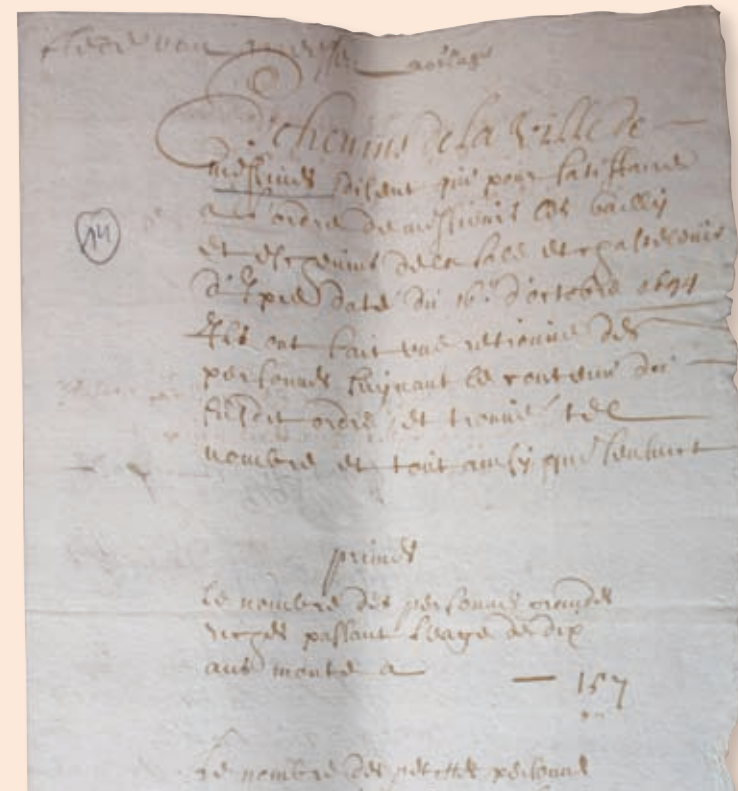 Eschevins de la Ville de
messines disent que pour satisffaire
a l'ordre de messieurs les bailly
et eschevins de la sale et chastelenie
d'Ypre daté du 16e d'octobre 1694
Ils ont fait une
personnes suyvant le contenu du
susdit ordre et trouvé tel
nombre et tout ainsy que s'ensuit
primes
Le nombre des personnes grandes
passant l'eage de dix
ans monte a — 157
Le nombre des petittes personnes
14